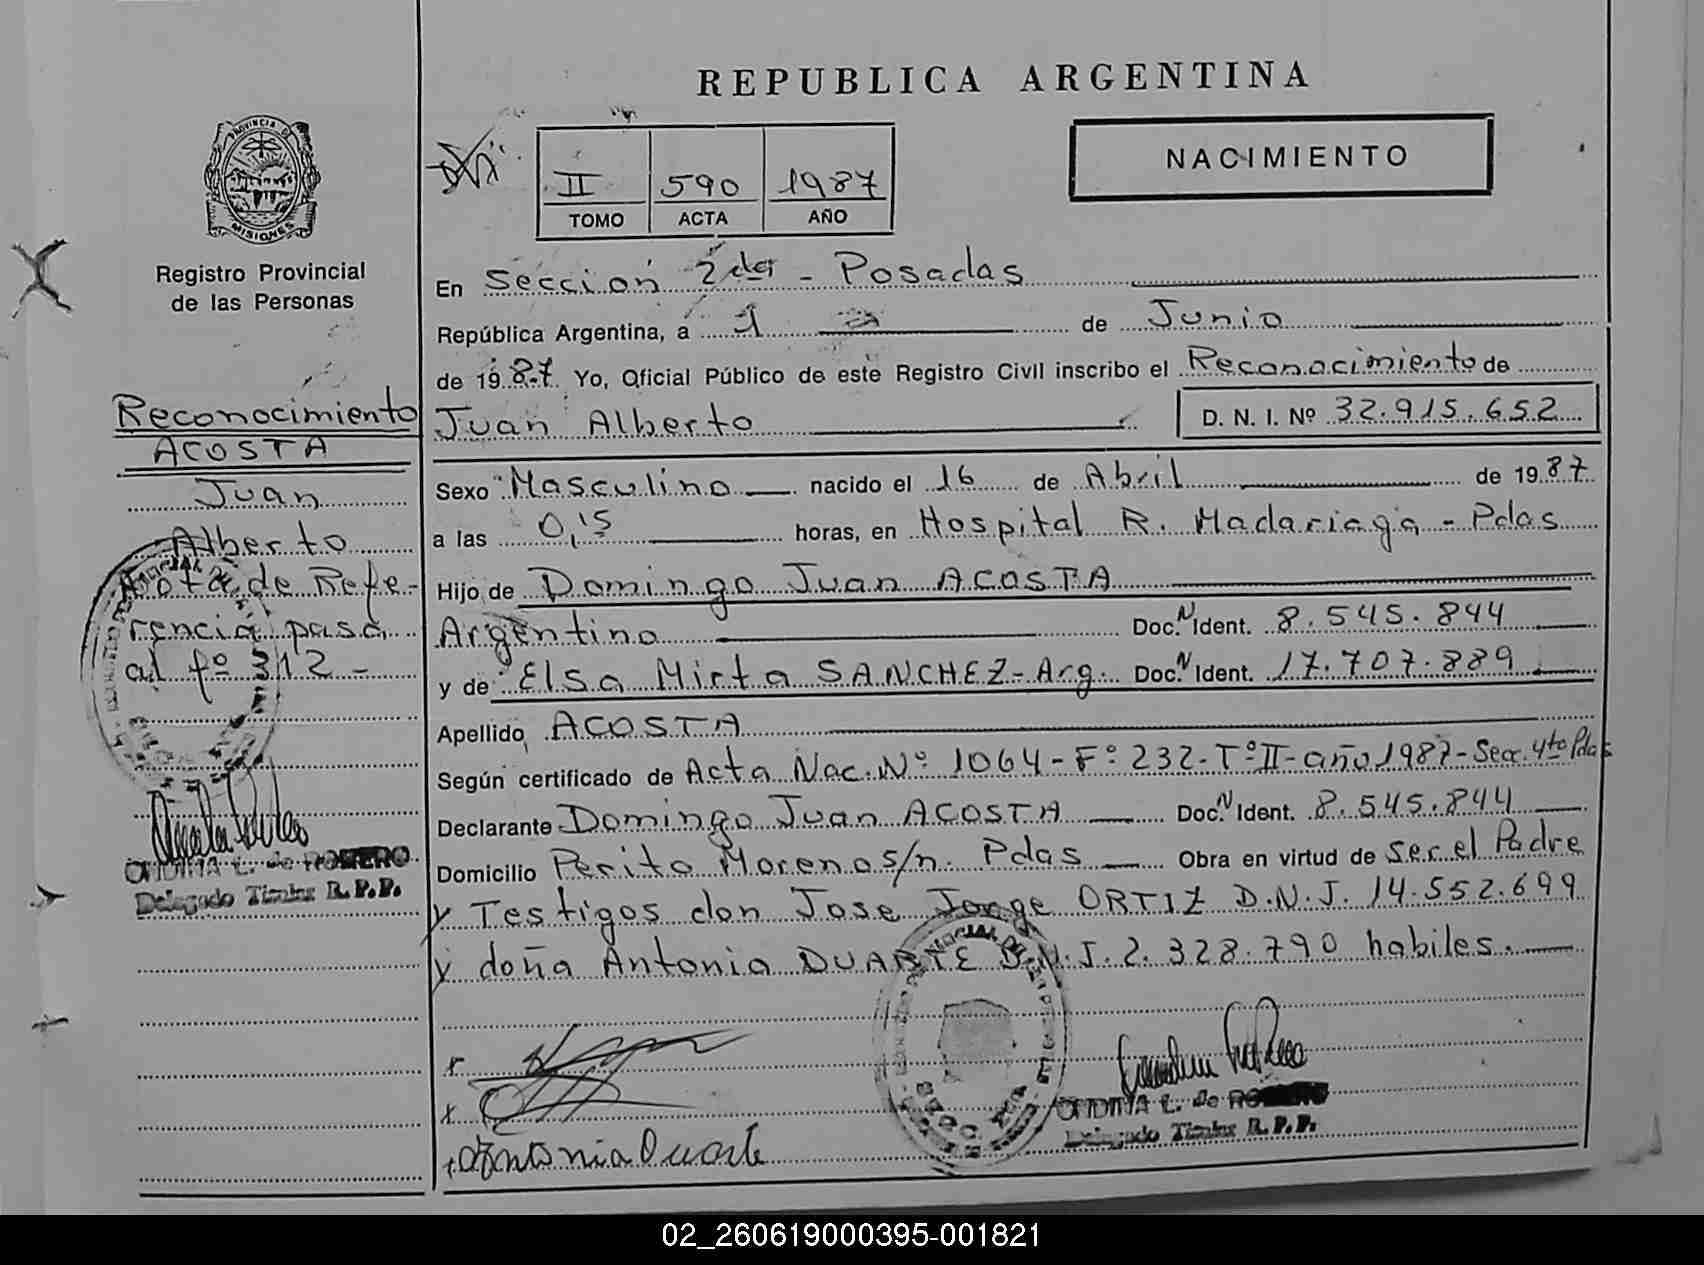 REPUBLICA ARGENTINA
PROVINCIA DE
MISIONES
Registro Provincial
de las Personas
II 590 1987
TOMO ACTA AÑO
NACIMIENTO
En Sección 2da - Posadas
República Argentina, a 1 de Junio
de 1987. Yo, Oficial Público de este Registro Civil inscribo el Reconocimiento de
Juan Alberto D. N. I. Nº 32.915.652
Sexo Masculino nacido el 16 de Abril de 1987
a las 0,15 horas, en Hospital R. Madariaga - Pdas
Hijo de Domingo Juan ACOSTA
Argentino Doc. N Ident. 8.545.844
y de Elsa Mirta SANCHEZ - Arg. Doc. N Ident. 17.707.889
Apellido ACOSTA
Según certificado de Acta Nac. Nº 1064 - Fº 232 - Tº II - año 1987 - Sec. 4to Pdas
Declarante Domingo Juan ACOSTA Doc. N Ident. 8.545.844
Domicilio Perito Moreno s/n. Pdas Obra en virtud de ser el Padre
y Testigos don Jose Jorge ORTIZ D.N.I. 14.552.699
y doña Antonia DUARTE D.N.I. 2.328.790 habiles.
Antonia Duarte
L. de ROMERO
Delegado Titular R.P.P.
Reconocimiento
ACOSTA
Juan
Alberto
Nota de Refe-
rencia pasa
al fº 312 -
L. de ROMERO
Delegado Titular R.P.P.
02_260619000395-001821